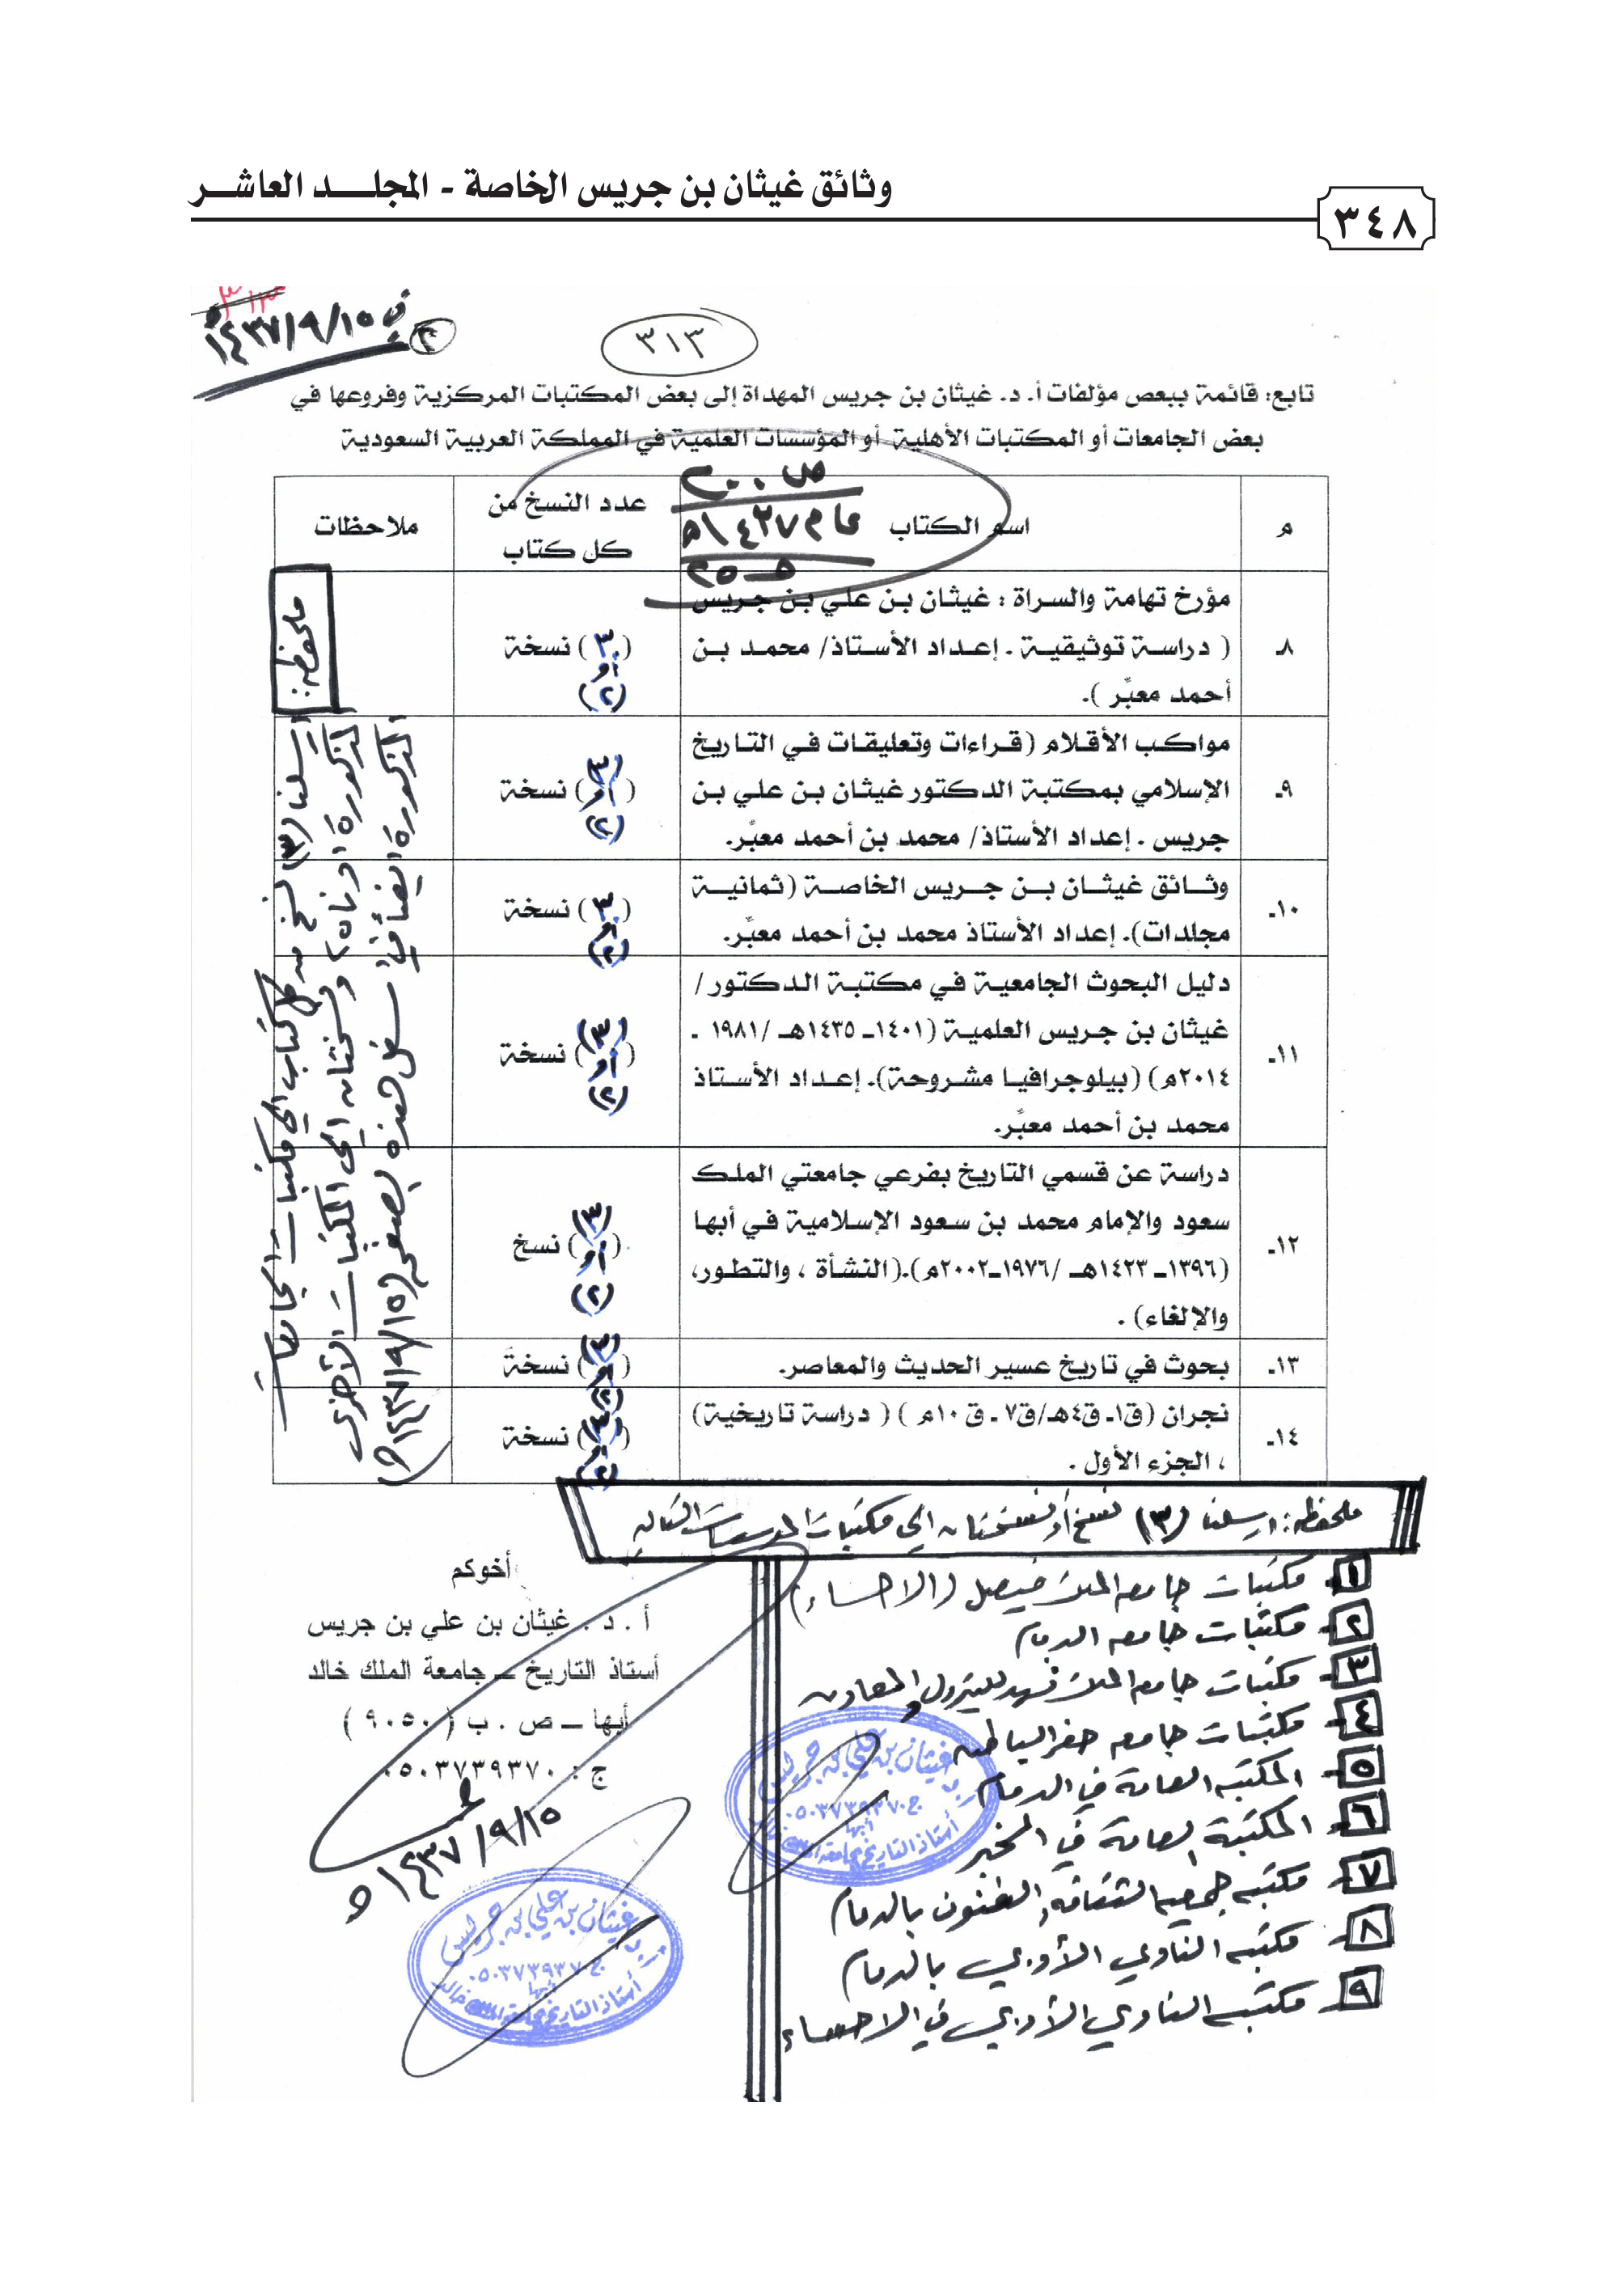 وثائق غيثان بن جريس الخاصة - المجلد العاشر
٣٤٨
٣١٣
في ١٤٣٧/٩/١٥هـ
٣١٣
تابع: قائمة ببعص مؤلفات أ. د. غيثان بن جريس المهداة إلى بعض المكتبات المركزية وفروعها في
بعض الجامعات أو المكتبات الأهلية أو المؤسسات العلمية في المملكة العربية السعودية
م
اسم الكتاب
عدد النسخ من
كل كتاب
ملاحظات
عام ١٤٣٧هـ
٨ـ
مؤرخ تهامة والسراة : غيثان بن علي بن جريس
( دراسة توثيقية . إعداد الأستاذ/ محمد بن
أحمد معبَّر ).
(٣) نسخة
أو
(٢)
٩ـ
مواكب الأقلام (قراءات وتعليقات في التاريخ
الإسلامي بمكتبة الدكتور غيثان بن علي بن
جريس . إعداد الأستاذ/ محمد بن أحمد معبَّر.
(٣)
(أو) نسخة
(٢)
١٠ـ
وثائق غيثان بن جريس الخاصة (ثمانية
مجلدات). إعداد الأستاذ محمد بن أحمد معبَّر.
(٣) نسخة
أو
(٢)
١١ـ
دليل البحوث الجامعية في مكتبة الدكتور/
غيثان بن جريس العلمية (١٤٠١ـ ١٤٣٥هـ /١٩٨١ ـ
٢٠١٤م) (بيلوجرافيا مشروحة). إعداد الأستاذ
محمد بن أحمد معبَّر.
(٣)
(أو) نسخة
(٢)
١٢ـ
دراسة عن قسمي التاريخ بفرعي جامعتي الملك
سعود والإمام محمد بن سعود الإسلامية في أبها
(١٣٩٦ـ ١٤٢٣هـ /١٩٧٦ـ٢٠٠٢م).(النشأة ، والتطور،
والإلغاء) .
(٣)
(أو) نسخ
(٢)
١٣ـ
بحوث في تاريخ عسير الحديث والمعاصر.
(٣)
(أو) نسخة
(٢)
١٤ـ
نجران (ق١ـ ق٤هـ/ق٧ ـ ق ١٠م ) ( دراسة تاريخية)
، الجزء الأول .
(٣) نسخة
أو
(٢)
ملحوظة:
ارسلنا (٣) نسخ من كل كتاب الى مكتبات الجامعات
المذكورة ادناه، ونسختان الى المكتبات الأخرى
المذكورة ايضاً في اسفل هذه الصفحة (١٤٣٧/٩/١٥هـ)
ملحوظة: ارسلنا (٣) نسخ أو نسختان الى مكتبات المؤسسات التالية
١- مكتبات جامعة الملك فيصل (الاحساء)
٢- مكتبات جامعة الدمام
٣- مكتبات جامعة الملك فهد للبترول والمعادن
٤- مكتبات جامعة حفر الباطن
٥- المكتبة العامة في الدمام
٦- المكتبة العامة في الخبر
٧- مكتبة جمعية الثقافة والفنون بالدمام
٨- مكتبة النادي الأدبي بالدمام
٩- مكتبة النادي الأدبي في الاحساء
أخوكم
أ . د . غيثان بن علي بن جريس
أستاذ التاريخ ــ جامعة الملك خالد
أبها ــ ص . ب ( ٩٠٥٠ )
ج : ٠٥٠٣٧٣٩٣٧٠
١٤٣٧/٩/١٥هـ
أ.د غيثان بن علي بن جريس
ج ٠٥٠٣٧٣٩٣٧٠
أبها
أستاذ التاريخ بجامعة الملك خالد
أ.د غيثان بن علي بن جريس
ج ٠٥٠٣٧٣٩٣٧٠
أبها
أستاذ التاريخ بجامعة الملك خالد